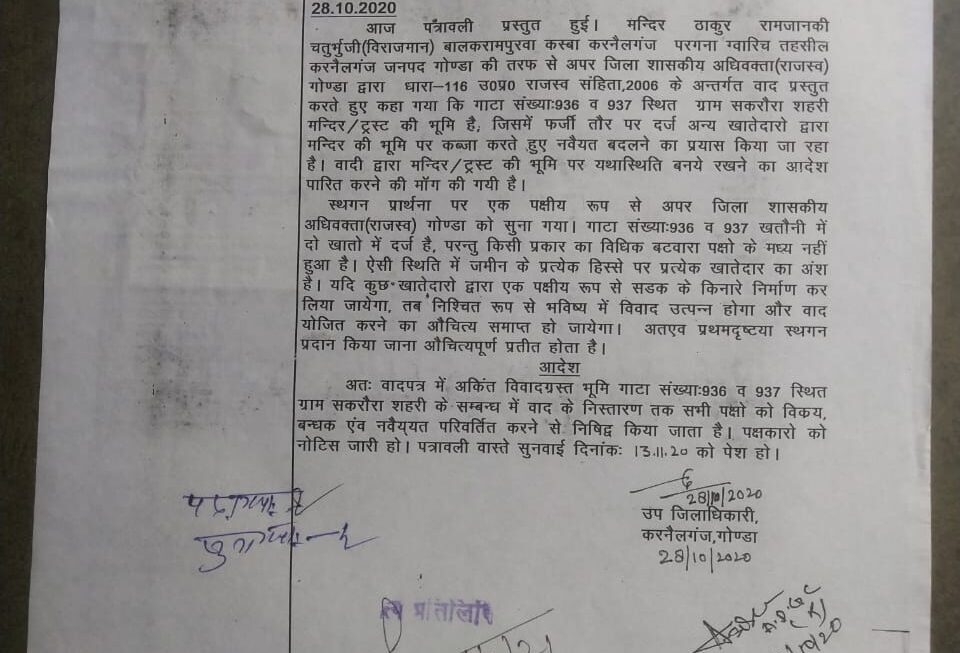 28.10.2020
आज पत्रावली प्रस्तुत हुई। मन्दिर ठाकुर रामजानकी
चतुर्भुजी(विराजमान) बालकरामपुरवा कस्बा करनैलगंज परगना ग्वारिच तहसील
करनैलगंज जनपद गोण्डा की तरफ से अपर जिला शासकीय अधिवक्ता(राजस्व)
गोण्डा द्वारा धारा–116 उ0प्र0 राजस्व संहिता,2006 के अन्तर्गत वाद प्रस्तुत
करते हुए कहा गया कि गाटा संख्याः936 व 937 स्थित ग्राम सकरौरा शहरी
मन्दिर/ट्रस्ट की भूमि है, जिसमें फर्जी तौर पर दर्ज अन्य खातेदारो द्वारा
मन्दिर की भूमि पर कब्जा करते हुए नवैयत बदलने का प्रयास किया जा रहा
है। वादी द्वारा मन्दिर/ट्रस्ट की भूमि पर यथास्थिति बनये रखने का आदेश
पारित करने की मॉग की गयी है।
स्थगन प्रार्थना पर एक पक्षीय रूप से अपर जिला शासकीय
अधिवक्ता(राजस्व) गोण्डा को सुना गया। गाटा संख्याः936 व 937 खतौनी में
दो खातो में दर्ज है, परन्तु किसी प्रकार का विधिक बटवारा पक्षो के मध्य नहीं
हुआ है। ऐसी स्थिति में जमीन के प्रत्येक हिस्से पर प्रत्येक खातेदार का अंश
है। यदि कुछ खातेदारो द्वारा एक पक्षीय रूप से सडक के किनारे निर्माण कर
लिया जायेगा, तब निश्चित रूप से भविष्य में विवाद उत्पन्न होगा और वाद
योजित करने का औचित्य समाप्त हो जायेगा। अतएव प्रथमदृष्टया स्थगन
प्रदान किया जाना औचित्यपूर्ण प्रतीत होता है।
आदेश
अतः वादपत्र में अकिंत विवादग्रस्त भूमि गाटा संख्याः936 व 937 स्थित
ग्राम सकरौरा शहरी के सम्बन्ध में वाद के निस्तारण तक सभी पक्षो को विकय,
बन्धक एंव नवैय्यत परिवर्तित करने से निषिद्व किया जाता है। पक्षकारो को
नोटिस जारी हो। पत्रावली वास्ते सुनवाई दिनांकः 13.11.20 को पेश हो।
28/10/2020
उप जिलाधिकारी,
करनैलगंज,गोण्डा
28/10/2020